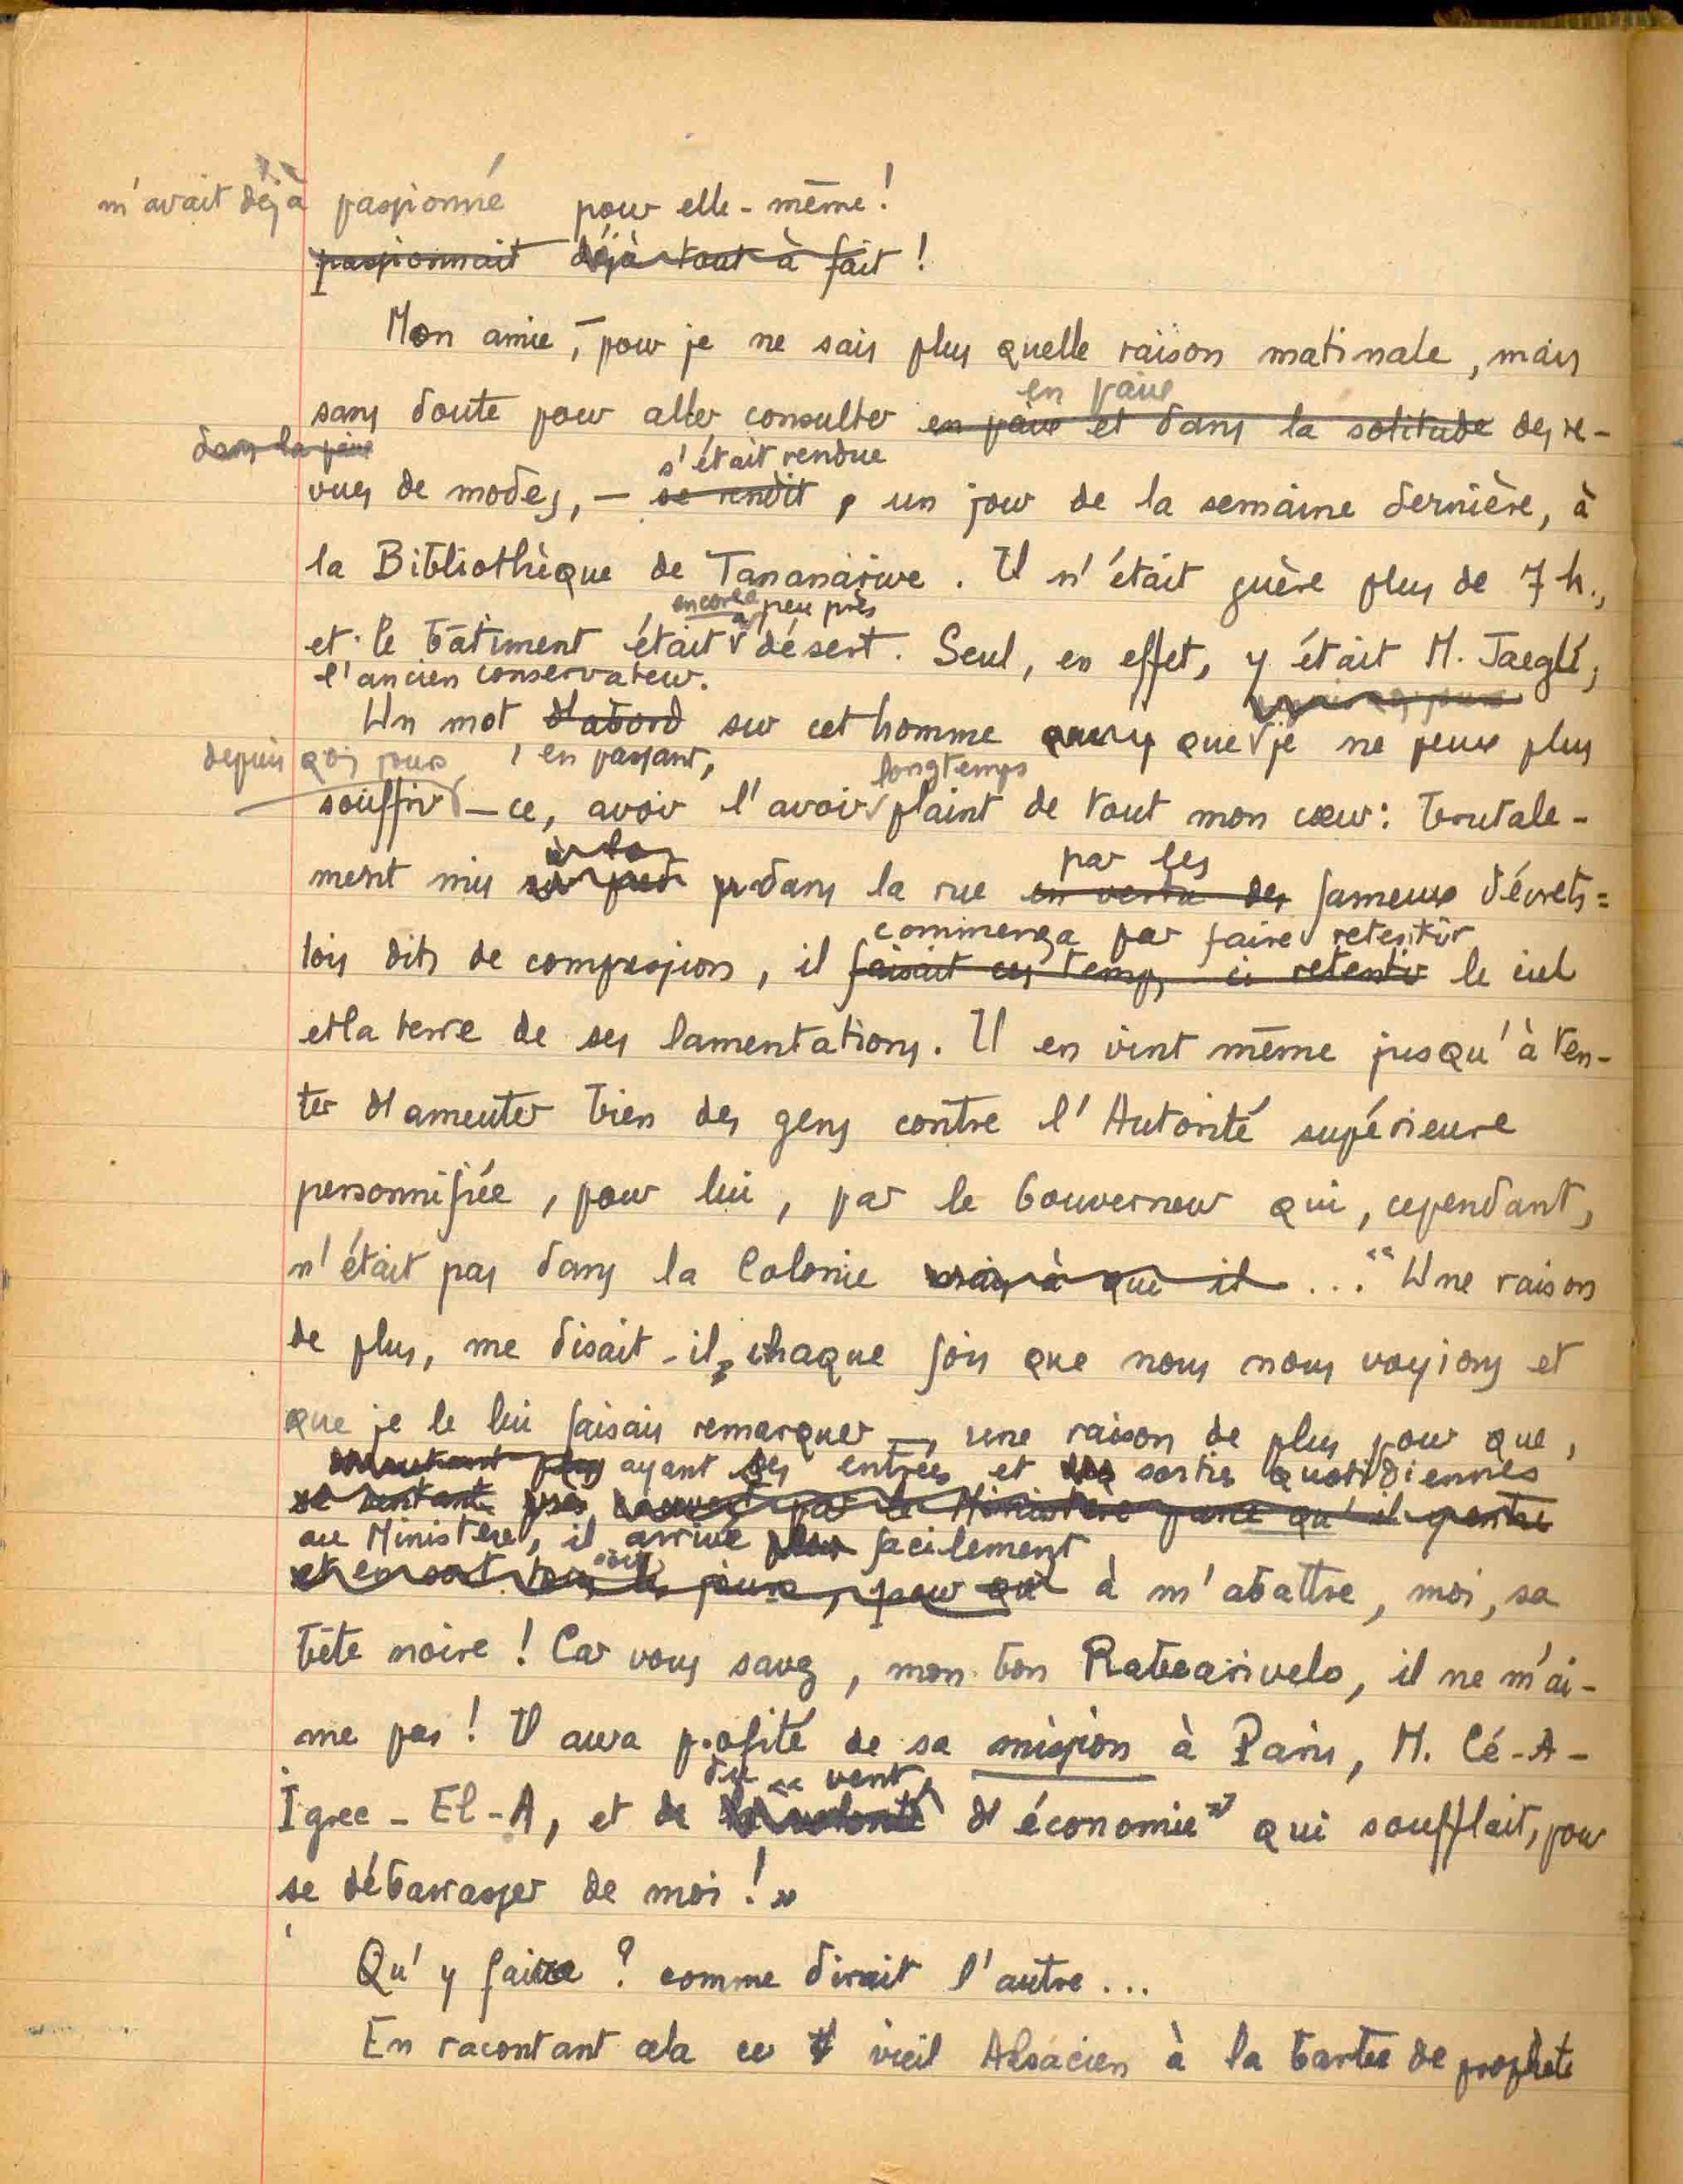 m'avait déjà passionné pour elle-même !
passionnait déjà tout à fait !
Mon amie, – pour je ne sais plus quelle raison matinale, mais
en paix
sans doute pour aller consulter en paix et dans la solitude des re-
dans la paix
s'était rendue
vues de modes, – se rendit, un jour de la semaine dernière, à
la Bibliothèque de Tananarive. Il n'était guère plus de 7 h.,
encore à peu près
et le bâtiment était désert. Seul, en effet, y était M. Jaeglé,
l'ancien conservateur.
Un mot d'abord sur cet homme que je ne peux plus
depuis qqs jours , en passant,
longtemps
souffrir – ce, avoir l'avoir plaint de tout mon cœur : brutale-
à la
par les
ment mis dans la rue en vertu des fameux décrets=
commença par faire retentir
lois dits de compression, il faisait ces temps-ci retentir le ciel
et la terre de ses lamentations. Il en vint même jusqu'à ten-
ter d'ameuter bien des gens contre l'Autorité supérieure
personnifiée, pour lui, par le Gouverneur qui, cependant,
n'était pas dans la Colonie mais à que il ... "Une raison
de plus, me disait-il, chaque fois que nous nous voyions et
que je le lui faisais remarquer –, une raison de plus pour que,
ayant ses entrées et ses sorties quotidiennes
se sentant près par le Ministère parce qu'il y entre
au Ministère, il arrive plus facilement
et en sort tous les jours, pour qu' à m'abattre, moi, sa
bête noire ! Car vous savez, mon bon Rabearivelo, il ne m'ai-
me pas ! Il aura profité de sa mission à Paris, M. Cé-A-
du "vent
Igrec-El-A, et de la volonté d'économie" qui soufflait, pour
se débarrasser de moi ! »
Qu'y faire ? comme dirait l'autre ...
En racontant cela ce vieil Alsacien à la barbe de prophète